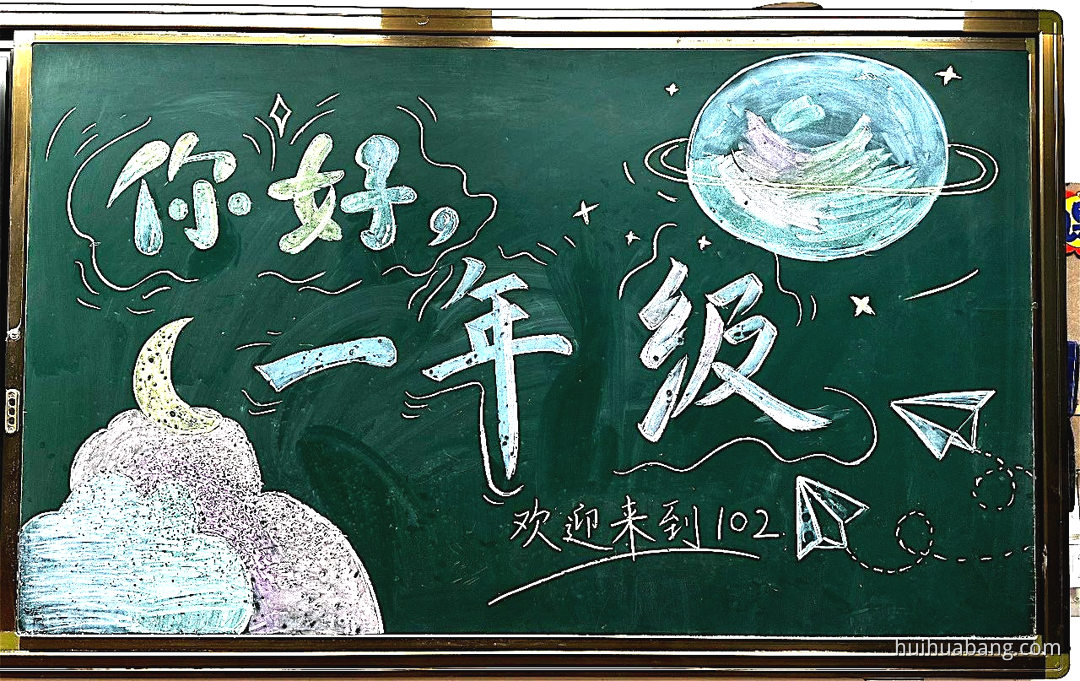 你好，
一年级
欢迎来到102
huihuabang.com